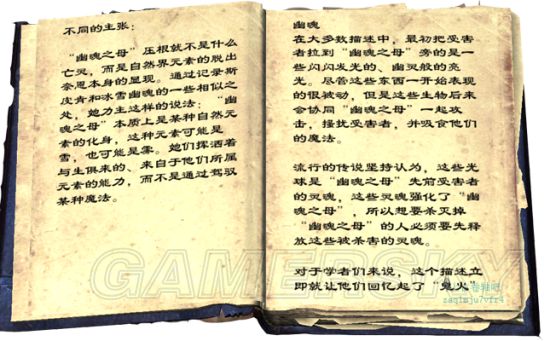 不同的主张：
“幽魂之母”压根就不是什么
亡灵，而是自然界元素的脱出
奈恩本身的显现。通过记录斯
皮肯和冰雪幽魂的一些相似之
处，她力主这样的说法：“幽
魂之母”本质上是某种自然元
素的化身，这种元素可能是
雪，也可能是雾。她们挥洒着
与生俱来的、来自于他们所属
元素的能力，而不是通过驾驭
某种魔法。
幽魂
在大多数描述中，最初把受害
者拉到“幽魂之母”旁的是一
些闪闪发光的、幽灵般的亮
光。尽管这些东西一开始表现
的很被动，但是这些生物后来
会协同“幽魂之母”一起攻
击，搔扰受害者，并吸食他们
的魔法。
流行的传说坚持认为，这些光
球是“幽魂之母”先前受害者
的灵魂，这些灵魂强化了“幽
魂之母”，所以想要杀灭掉
“幽魂之母”的人必须要先释
放这些被杀害的灵魂。
对于学者们来说，这个描述立
即就让他们回忆起了“鬼火
GAMERSKY
zaqimju7vfr4